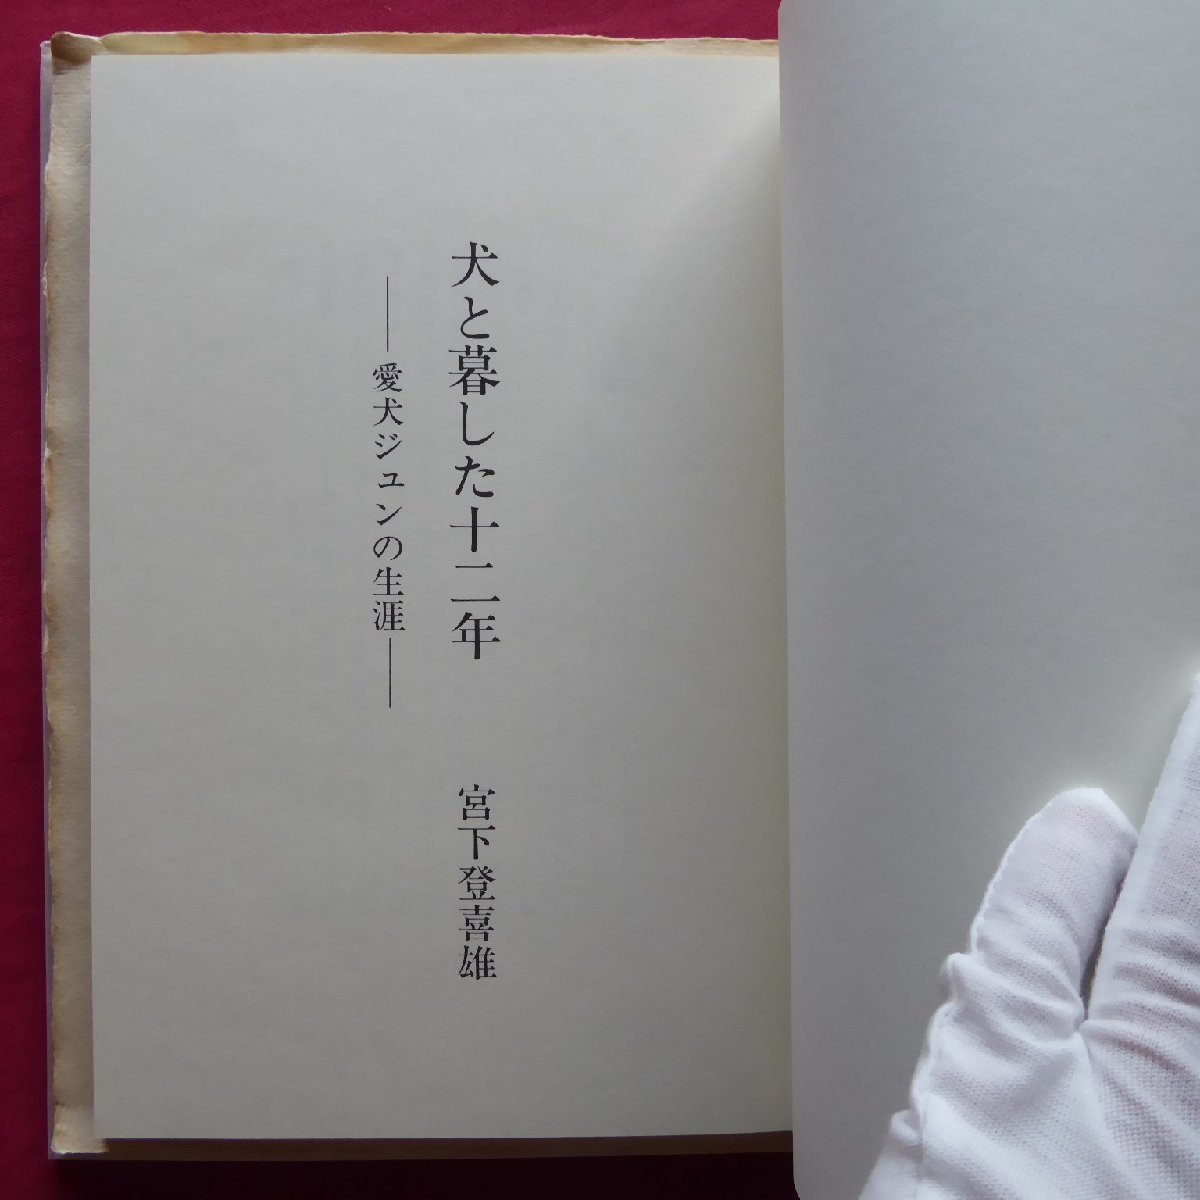 犬と暮した十二年
宮下登喜雄
――愛犬ジュンの生涯――